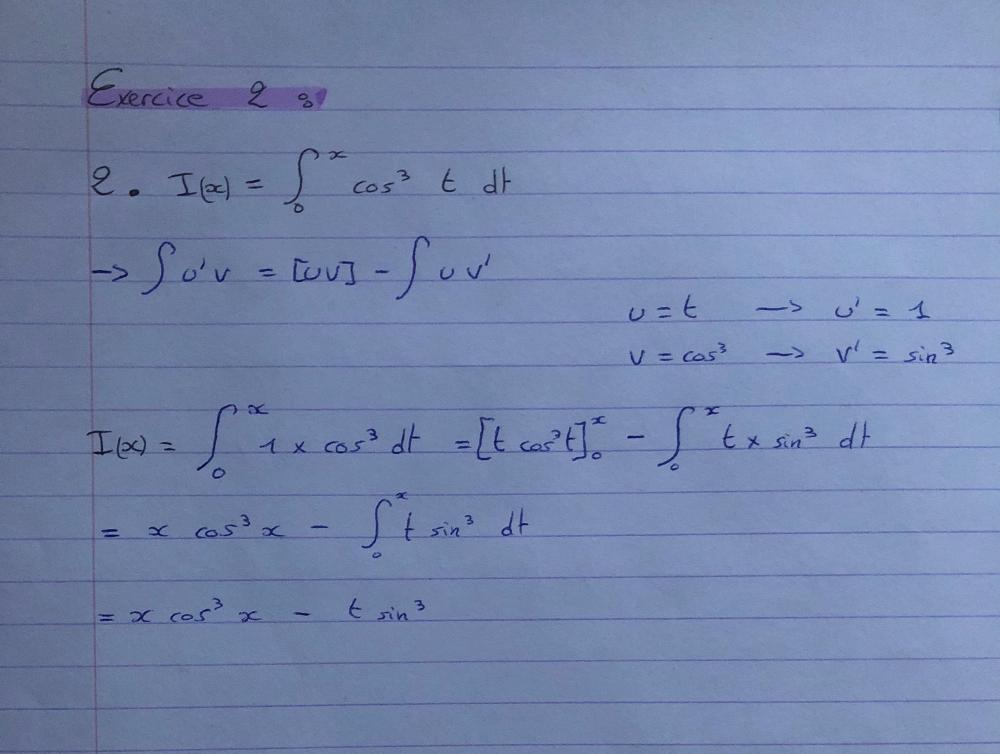 Exercice 2 :
2. I(x) = ∫₀ˣ cos³ t dt
→ ∫ u'v = [uv] - ∫ u v'
u = t → u' = 1
v = cos³ → v' = sin³
I(x) = ∫₀ˣ 1 × cos³ dt = [t cos³t]₀ˣ - ∫₀ˣ t × sin³ dt
= x cos³ x - ∫₀ˣ t sin³ dt
= x cos³ x - t sin³